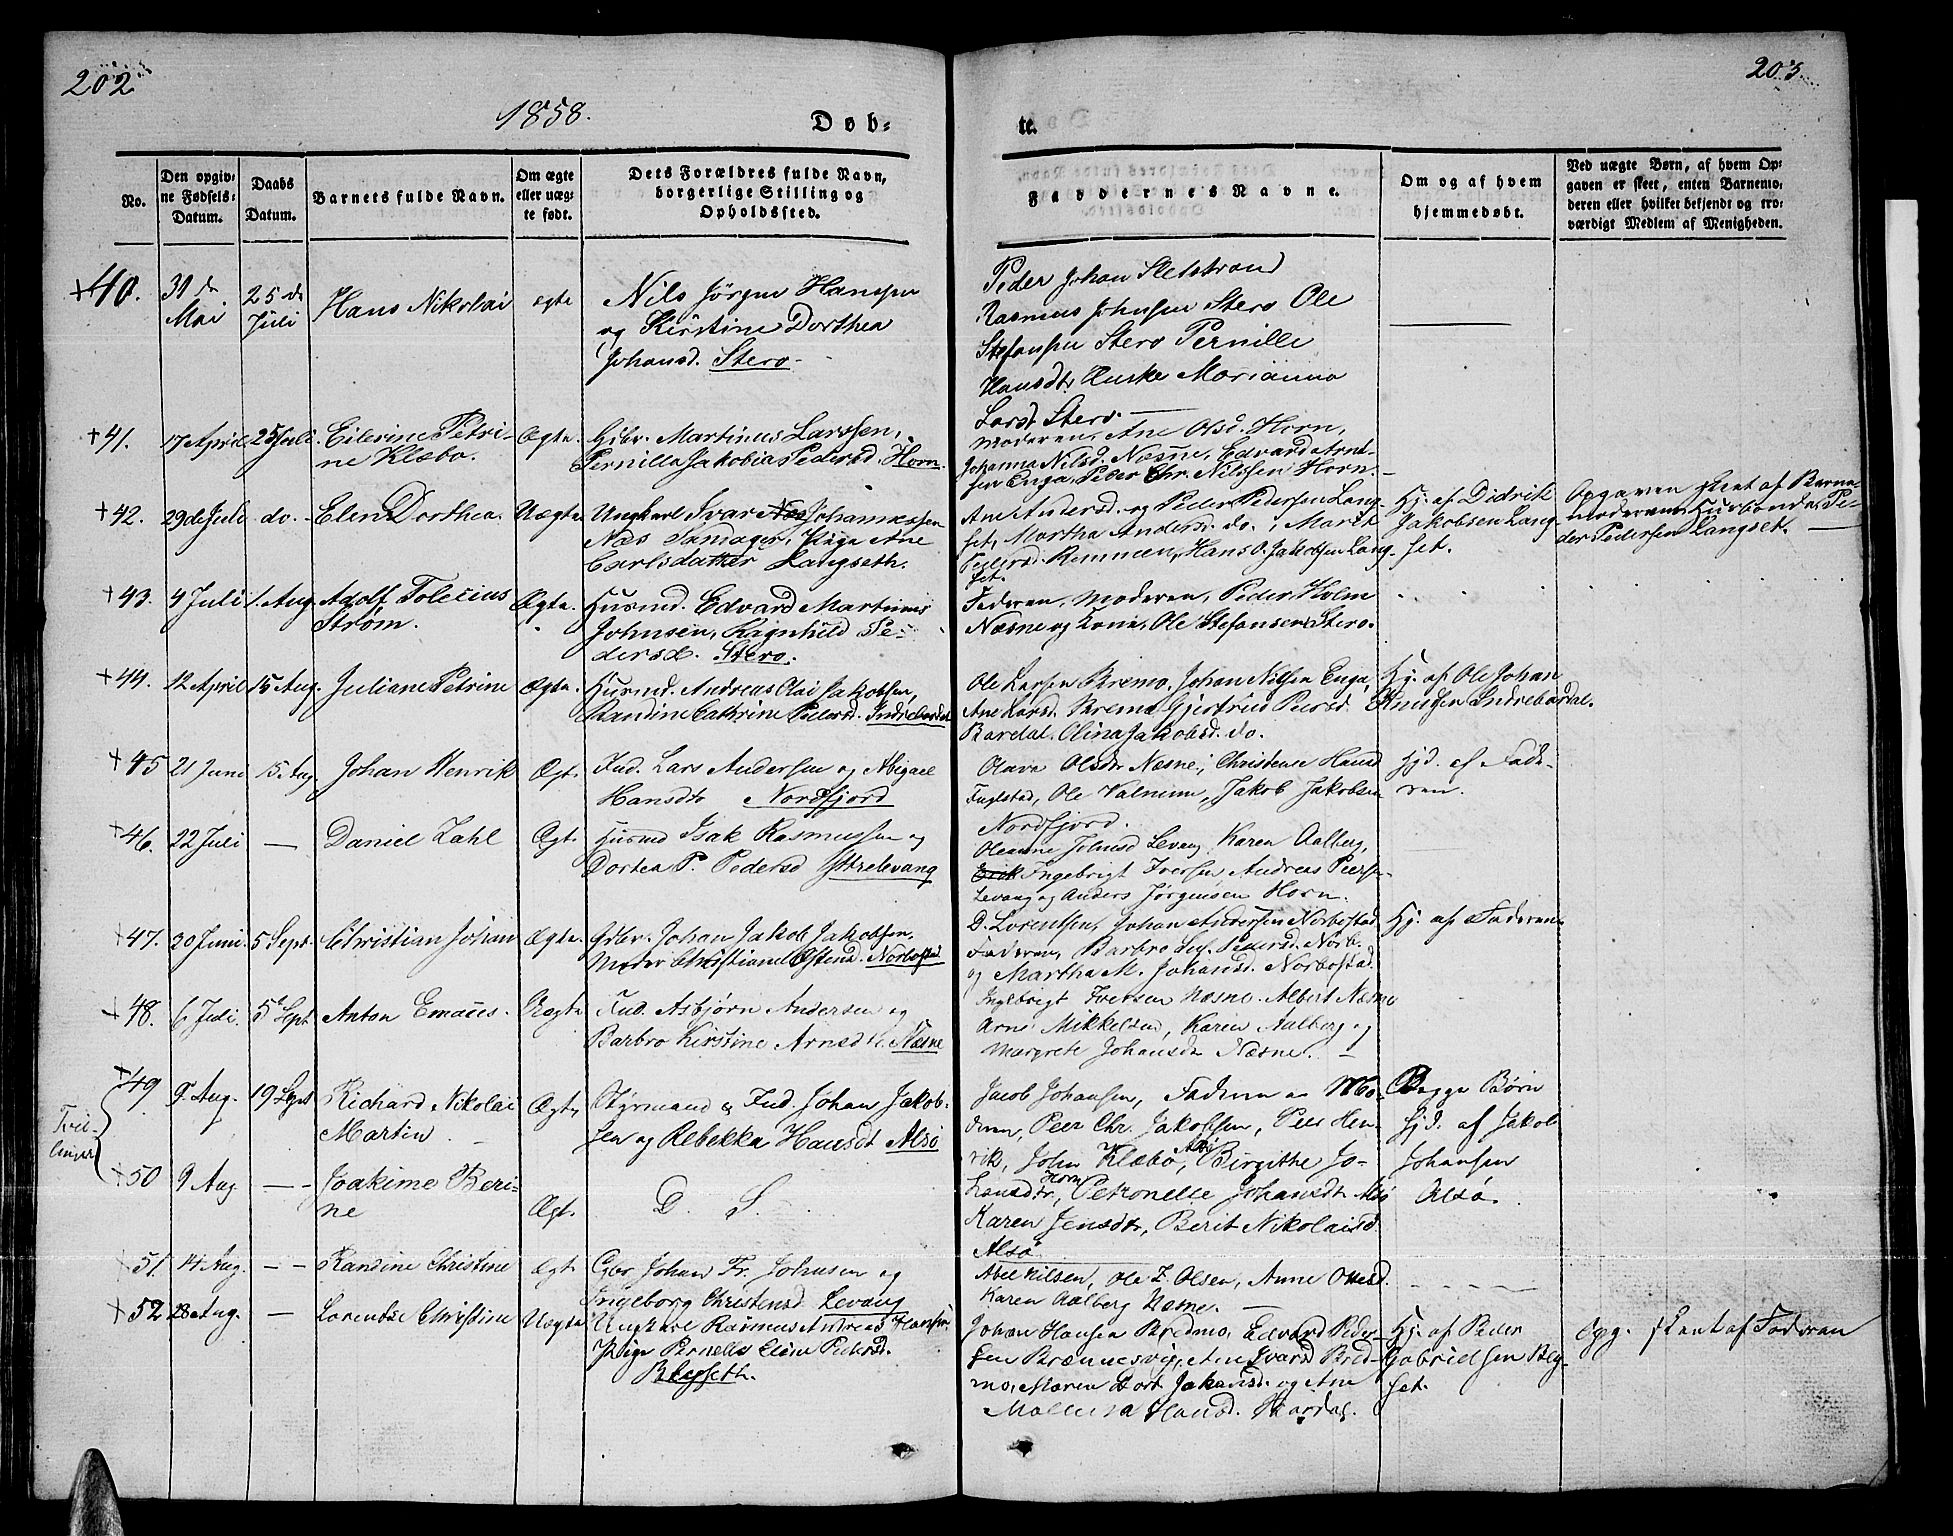 202
203
1858.
Døb-
te.
No.
Den opgiv-
ne Fødsels-
Datum.
Daabs
Datum.
Barnets fulde Navn.
Om ægte
eller uæg-
te født.
Dets Forældres fulde Navn,
borgerlige Stilling og
Opholdssted.
Faddernes Navne.
Om og af hvem
hjemmedøbt.
Ved uægte Børn, af hvem Op-
gaven er skeet, enten Barnemo-
deren eller hvilket bekjendt og tro-
værdigt Medlem af Menigheden.
+40.
31 de
Mai
25 de
Juli
Hans Nikolai
ægte
Nils Jörgen Hanssen
og Kirstine Dorthea
Johansd. Stero.
Peder Johan Sletstrand
Rasmus Johnsen Stero Ole
Stefansen Stero Pernille
Hansdtr. Huske Marianna
Larsd. Stero.
+41.
17 April
25 Juli
Eilerine Petri-
ne Klæbo.
Ægte.
Gdbr. Martinus Larssen,
Pernilla Jakobia Pedersd. Horn.
Moderen, Ane Olsd. Horn,
Johanna Nilsd. Næsne, Edvard Arnt-
sen Enga, Peder Chr. Nilssen Horn.
+42.
29 de Juli
do.
Elen Dorthea.
Uægte
Ungkarl Ivar Johannessen
Næs Tandager, Pige Ane
Carlsdatter Langseth.
Ane Andersd. og Peder Pedersen Lang-
set, Martha Andersd. do., Marit
Pedersd. Remmen, Hans O. Jakobsen Lang-
set.
Hj. af Didrik
Jakobsen Lang-
set.
Opgaven skeet af Barne-
moderens Huusbonde Pe-
der Pedersen Langset.
+43.
4 Juli
1. Aug.
Adolf Tolecius
Strøm.
Ægte.
Husmd. Edvard Martinus
Johnsen, Ragnhild Pe-
dersd. Stero.
Faderen, Moderen, Peder Holm
Næsne og Kone, Ole Stefansen Stero.
+44.
12 April
15 Aug.
Juliane Petrine
Ægte.
Husmd. Andreas Olai Jakobsen,
Randine Cathrine Pedersd. Indrebardal
Ole Larsen Bremo, Johan Nilsen Enga,
Ane Larsd. Bremo, Gjertrud Pedersd.
Bardal, Olina Jakobsd. do.
Hj. af Ole Johan
Knudsen Indrebardal.
+45
21 Juni
15. Aug
Johan Henrik
Ægt.
Ind. Lars Andersen og Abigael
Hansdtr Nordfjord
Olava Olsdtr Næsne, Christense Hansd
Fuglstad, Ole Valnum, Jakob Jakobsen
Nordfjord.
Hjd. af Fade-
ren.
+46.
22 Juli
Daniel Zahl
Ægt.
Husmd Isak Rasmussen og
Dortea P. Pedersd Ytrelevang
Oleanne Johnsd Levang, Karen Aalberg,
Ingebrigt Iversen, Andreas Peersen
Levang og Anders Jørgensen Horn.
+47.
20 Juni
5 Sept.
Christian Johan
Ægte.
Gdbr. Johan Jakob Jakobsen,
Moder Christiane Ostensd. Norbostad
D. Lorentsen, Johan Andersen Norbostad
Faderen, Barbro Pedersd. Norb.
og Martha M. Johansd. Norbostad
Hj. af Faderen
+48.
6 Juli.
5 Sept
Anton Emaus.
Uægte
Ind. Asbjørn Andersen og
Barbro Kirstine Arnsdtr. Næsne
Ingebrigt Iversen Næsne, Albert Næsne
Arne Mikkelsen, Karen Aalberg og
Margrete Johansdtr Næsne.
Tvil-
linger
+49.
9 Aug.
19 Sept
Richard Nikolai
Martin
Ægt.
Styrmand & Ind. Johan Jakob-
sen og Rebekka Hansdt Alsö
Jacob Johansen, Faderen og Mo-
deren, Peer Chr. Jakobsen, Peer Hen-
rik, John Klæbö, Birgithe Jo-
hansdtr, Horn Petronelle Johansdt Alsö
Karen Jensdtr, Berit Nikolaisd
Alsö
Begge Børn
hjd. af Jakob
Johansen
Alsö.
+50
9 Aug.
Joakime Beri-
ne
Ægt.
D. S.
51.
14 Aug.
Randine Christine
Ægt.
Gbr Johan Fr. Johnsen og
Ingeborg Christensd Levang
Abel Nilsen, Ole Z. Olsen, Anne Ottesd.
Karen Aalberg Næsne.
+52
28 Aug.
Lorentse Christine
Uægte
Ungkarl Rasmus Andreas Hansen
Pige Pernelle Eline Pedersd.
Blegseth.
Johan Hansen Bredmo, Edvard Peder-
sen Brænnesvig, Ane Ivarsd Bred-
mo, Maren Dort. Jakobsd. og Ane
Hansd. Bardal.
Hj. af Peder
Gabrielsen Bleg-
set.
Opg. skeet af Faderen